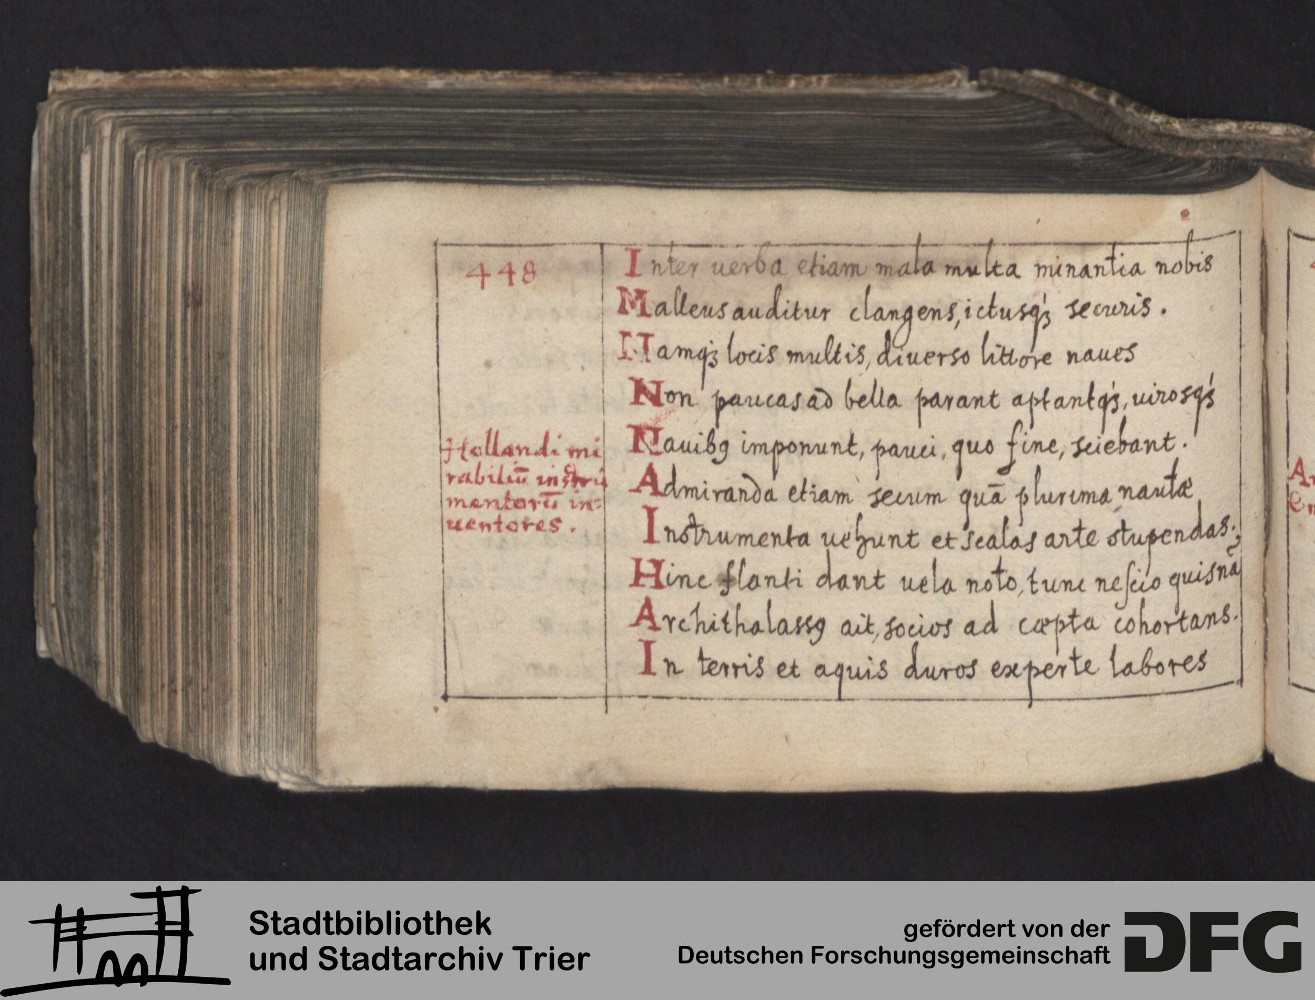 448
Inter uerba etiam mala multa minantia nobis
Malleus auditur clangens, ictusq́ꝫ securis.
Namq́ꝫ locis multis, diuerso littore naues
Non paucas ad bella parant aptantq́ꝫ, uirosq́ꝫ
Nauibꝯ imponunt, pauci, quo fine, sciebant.
Admiranda etiam secum quā plurima nautæ
Instrumenta uehunt et scalas arte stupendas;
Hinc flanti dant uela noto, tunc nescio quisnā
Archithalassꝯ ait, socios ad cœpta cohortans.
In terris et aquis duros experte labores
Hollandi mi
rabiliū instru
mentorū in-
uentores.
Stadtbibliothek
und Stadtarchiv Trier
gefördert von der
Deutschen Forschungsgemeinschaft
DFG